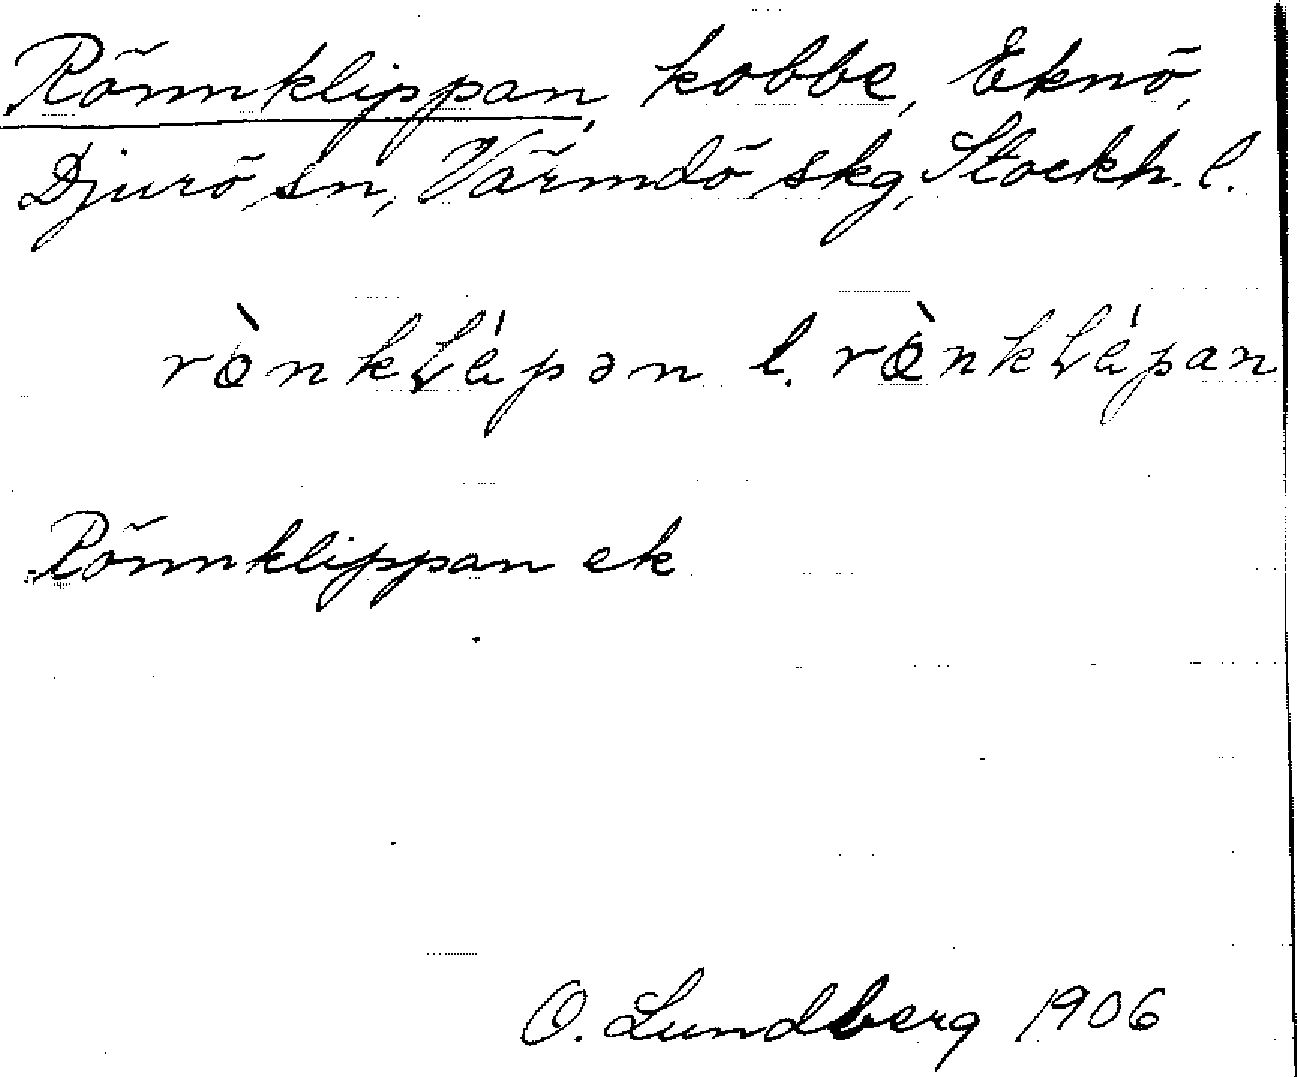 Rönnklippan, kobbe, Eknö,
Djurö sn, Värmdö skg, Stockh. l.
rònkĿépən l. rònkĿépan
Rönnklippan ek
O. Lundberg 1906